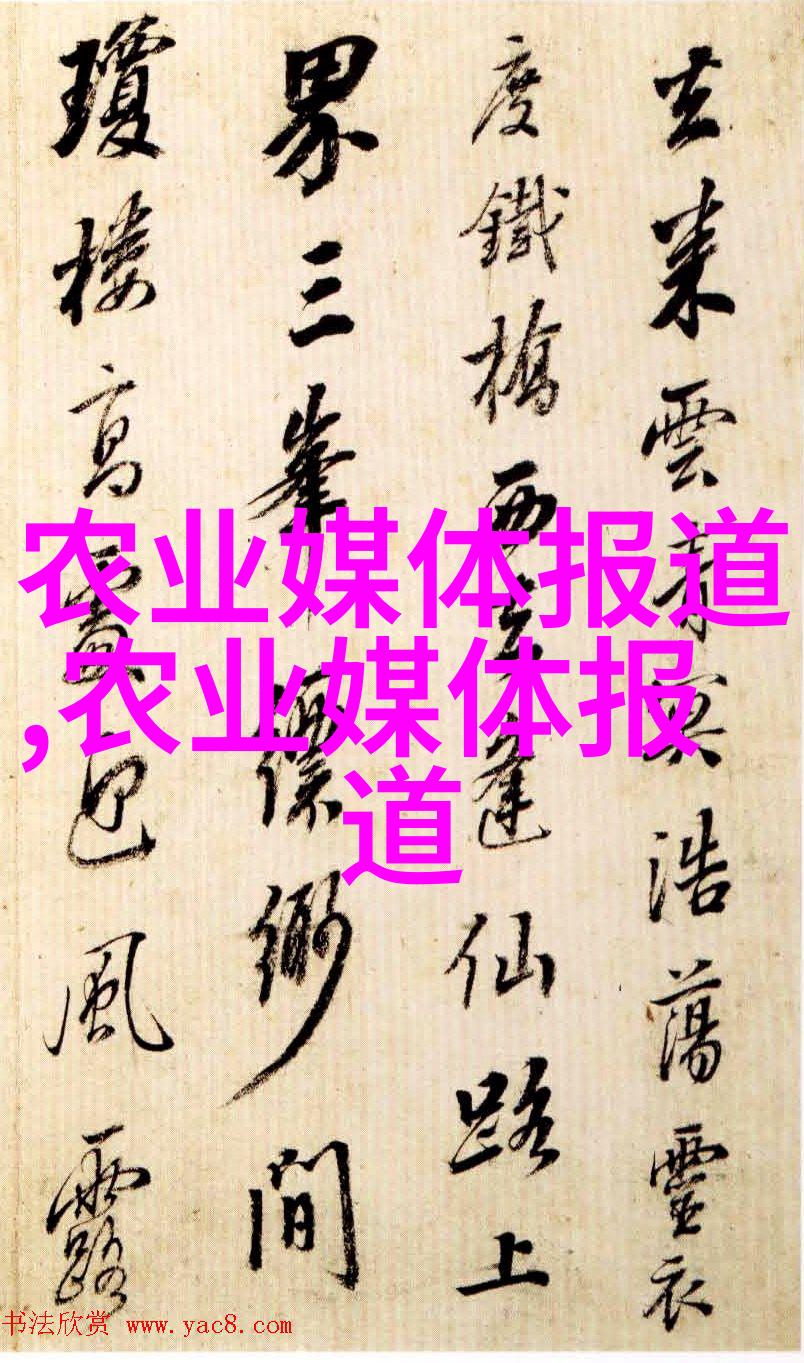 来雲冥浩蕩靈衣
度鐵橋西逢仙路上
界三峯縹緲間
瓊樓高風露
农业媒体报道
,农业媒体报
道
书法欣赏 www.yac8.com